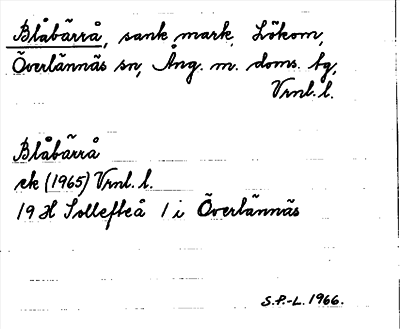 Blåbärrå, sank mark, Lökom,
Överlännäs sn, Ång. m. doms. tg,
Vrnl. l.
Blåbärrå
ek (1965) Vrnl. l.
19 H Sollefteå 1 i Överlännäs
S.P.-L. 1966.